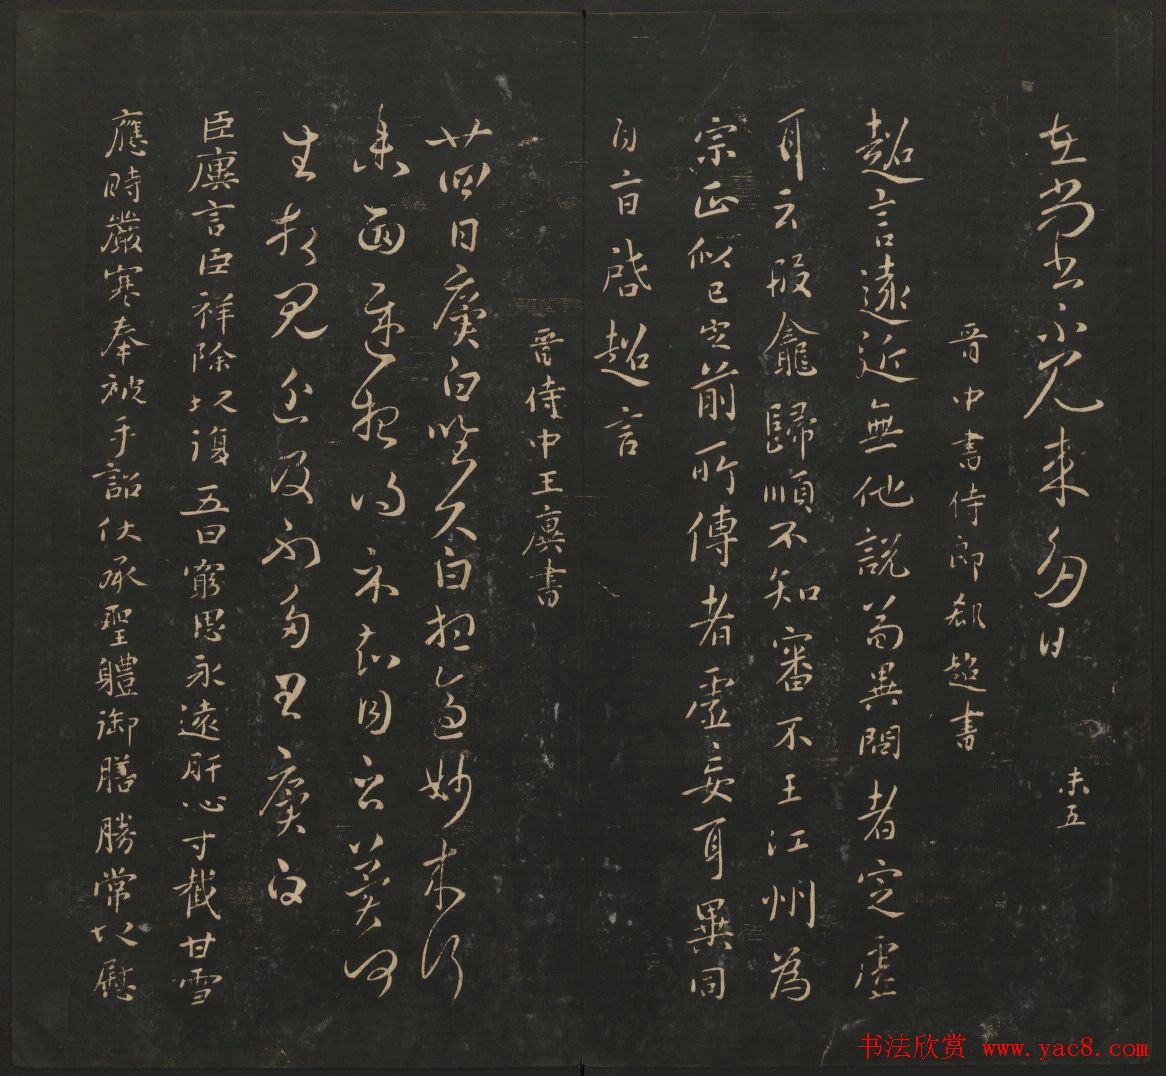 在尚書不免來多日
未五
晉中書侍郎郗超書
超言遠近無他說苟異問者定虛
耳云殷龕歸順不知審不王江州為
宗正似已定前所傳者虛妄耳異同
啓超言
晉侍中王廙書
廿四日廙白久白想妙未行
面遲知問何
生見及不多王廙白
臣廙言臣祥除以復五日窮思永遠肝心寸截甘雪
應時嚴寒奉被手詔伏承聖體御膳勝常以慰
书法欣赏 www.yac8.com